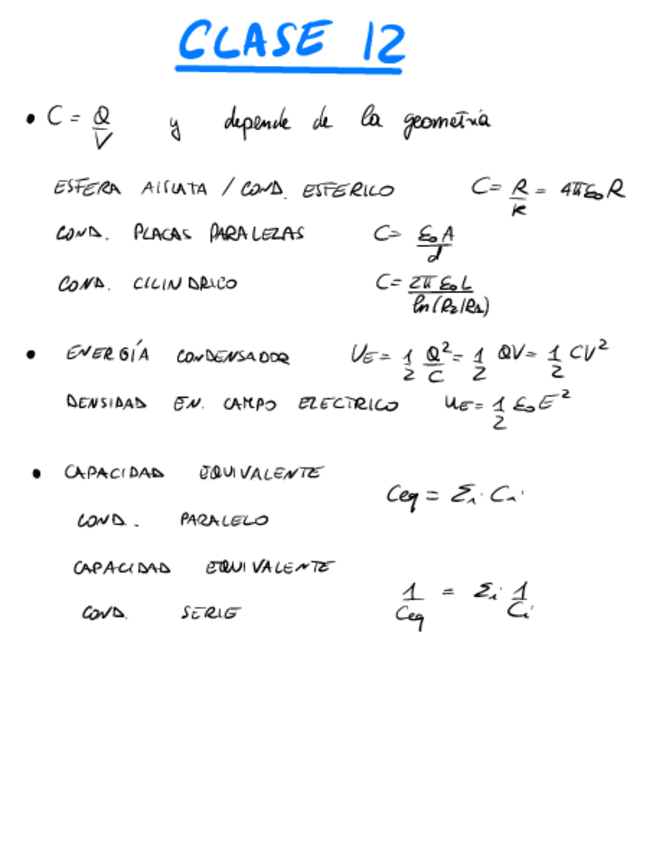 CLASE 12
• C = Q/V y depende de la geometría
ESFERA AISLATA / COND. ESFERICO C = R/K = 4πε₀R
COND. PLACAS PARALEZAS C = ε₀A/d
COND. CILINDRICO C = 2πε₀L/ln(R₂/R₁)
• ENERGÍA CONDENSADOR U_E = 1/2 Q²/C = 1/2 QV = 1/2 CV²
DENSIDAD EN. CAMPO ELECTRICO u_E = 1/2 ε₀E²
• CAPACIDAD EQUIVALENTE
COND. PARALELO Ceq = Σᵢ Cᵢ
CAPACIDAD EQUIVALENTE
COND. SERIE 1/Ceq = Σᵢ 1/Cᵢ